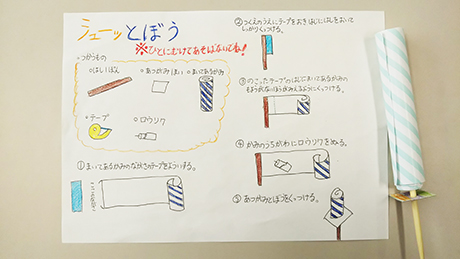 シューッとぼう
※ひとにむけてあそばないでね!
・つかうもの
○はしいっぽん
○あつがみ1まい
○まいてあるかみ
○テープ
○ロウソク
①まいてあるかみのながさのテープをよういする。
②つくえのうえにテープをおきはじにはしをおいて
しっかりくっつける。
③のこったテープのはじにまいてあるかみの
④かみのうちがわにロウソクをぬる。
⑤あつがみとぼうをくっつける。